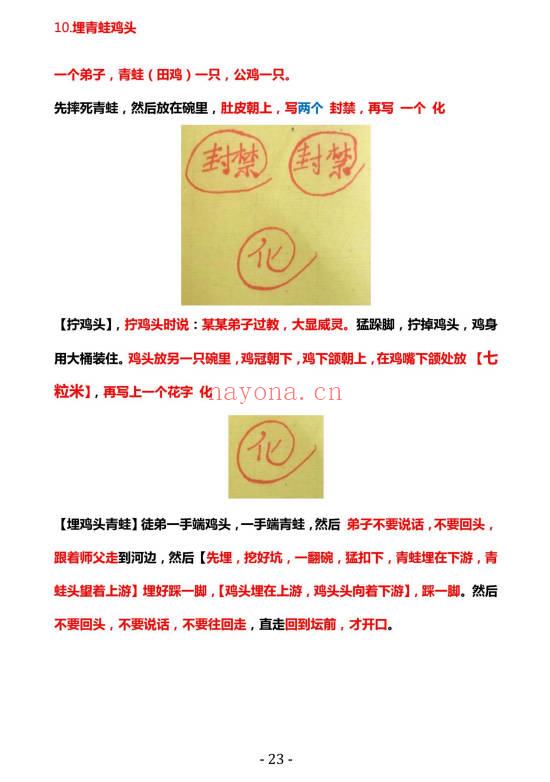 10.埋青蛙鸡头
一个弟子，青蛙（田鸡）一只，公鸡一只。
先摔死青蛙，然后放在碗里，肚皮朝上，写两个 封禁，再写 一个 化
封禁 封禁
化
【拧鸡头】，拧鸡头时说：某某弟子过教，大显威灵。猛跺脚，拧掉鸡头，鸡身
用大桶装住。鸡头放另一只碗里，鸡冠朝下，鸡下颌朝上，在鸡嘴下颌处放 【七
粒米】，再写上一个花字 化
nayona.cn
化
【埋鸡头青蛙】徒弟一手端鸡头，一手端青蛙，然后 弟子不要说话，不要回头，
跟着师父走到河边，然后【先埋，挖好坑，一翻碗，猛扣下，青蛙埋在下游，青
蛙头望着上游】埋好踩一脚，【鸡头埋在上游，鸡头头向着下游】，踩一脚。然后
不要回头，不要说话，不要往回走，直走回到坛前，才开口。
- 23 -